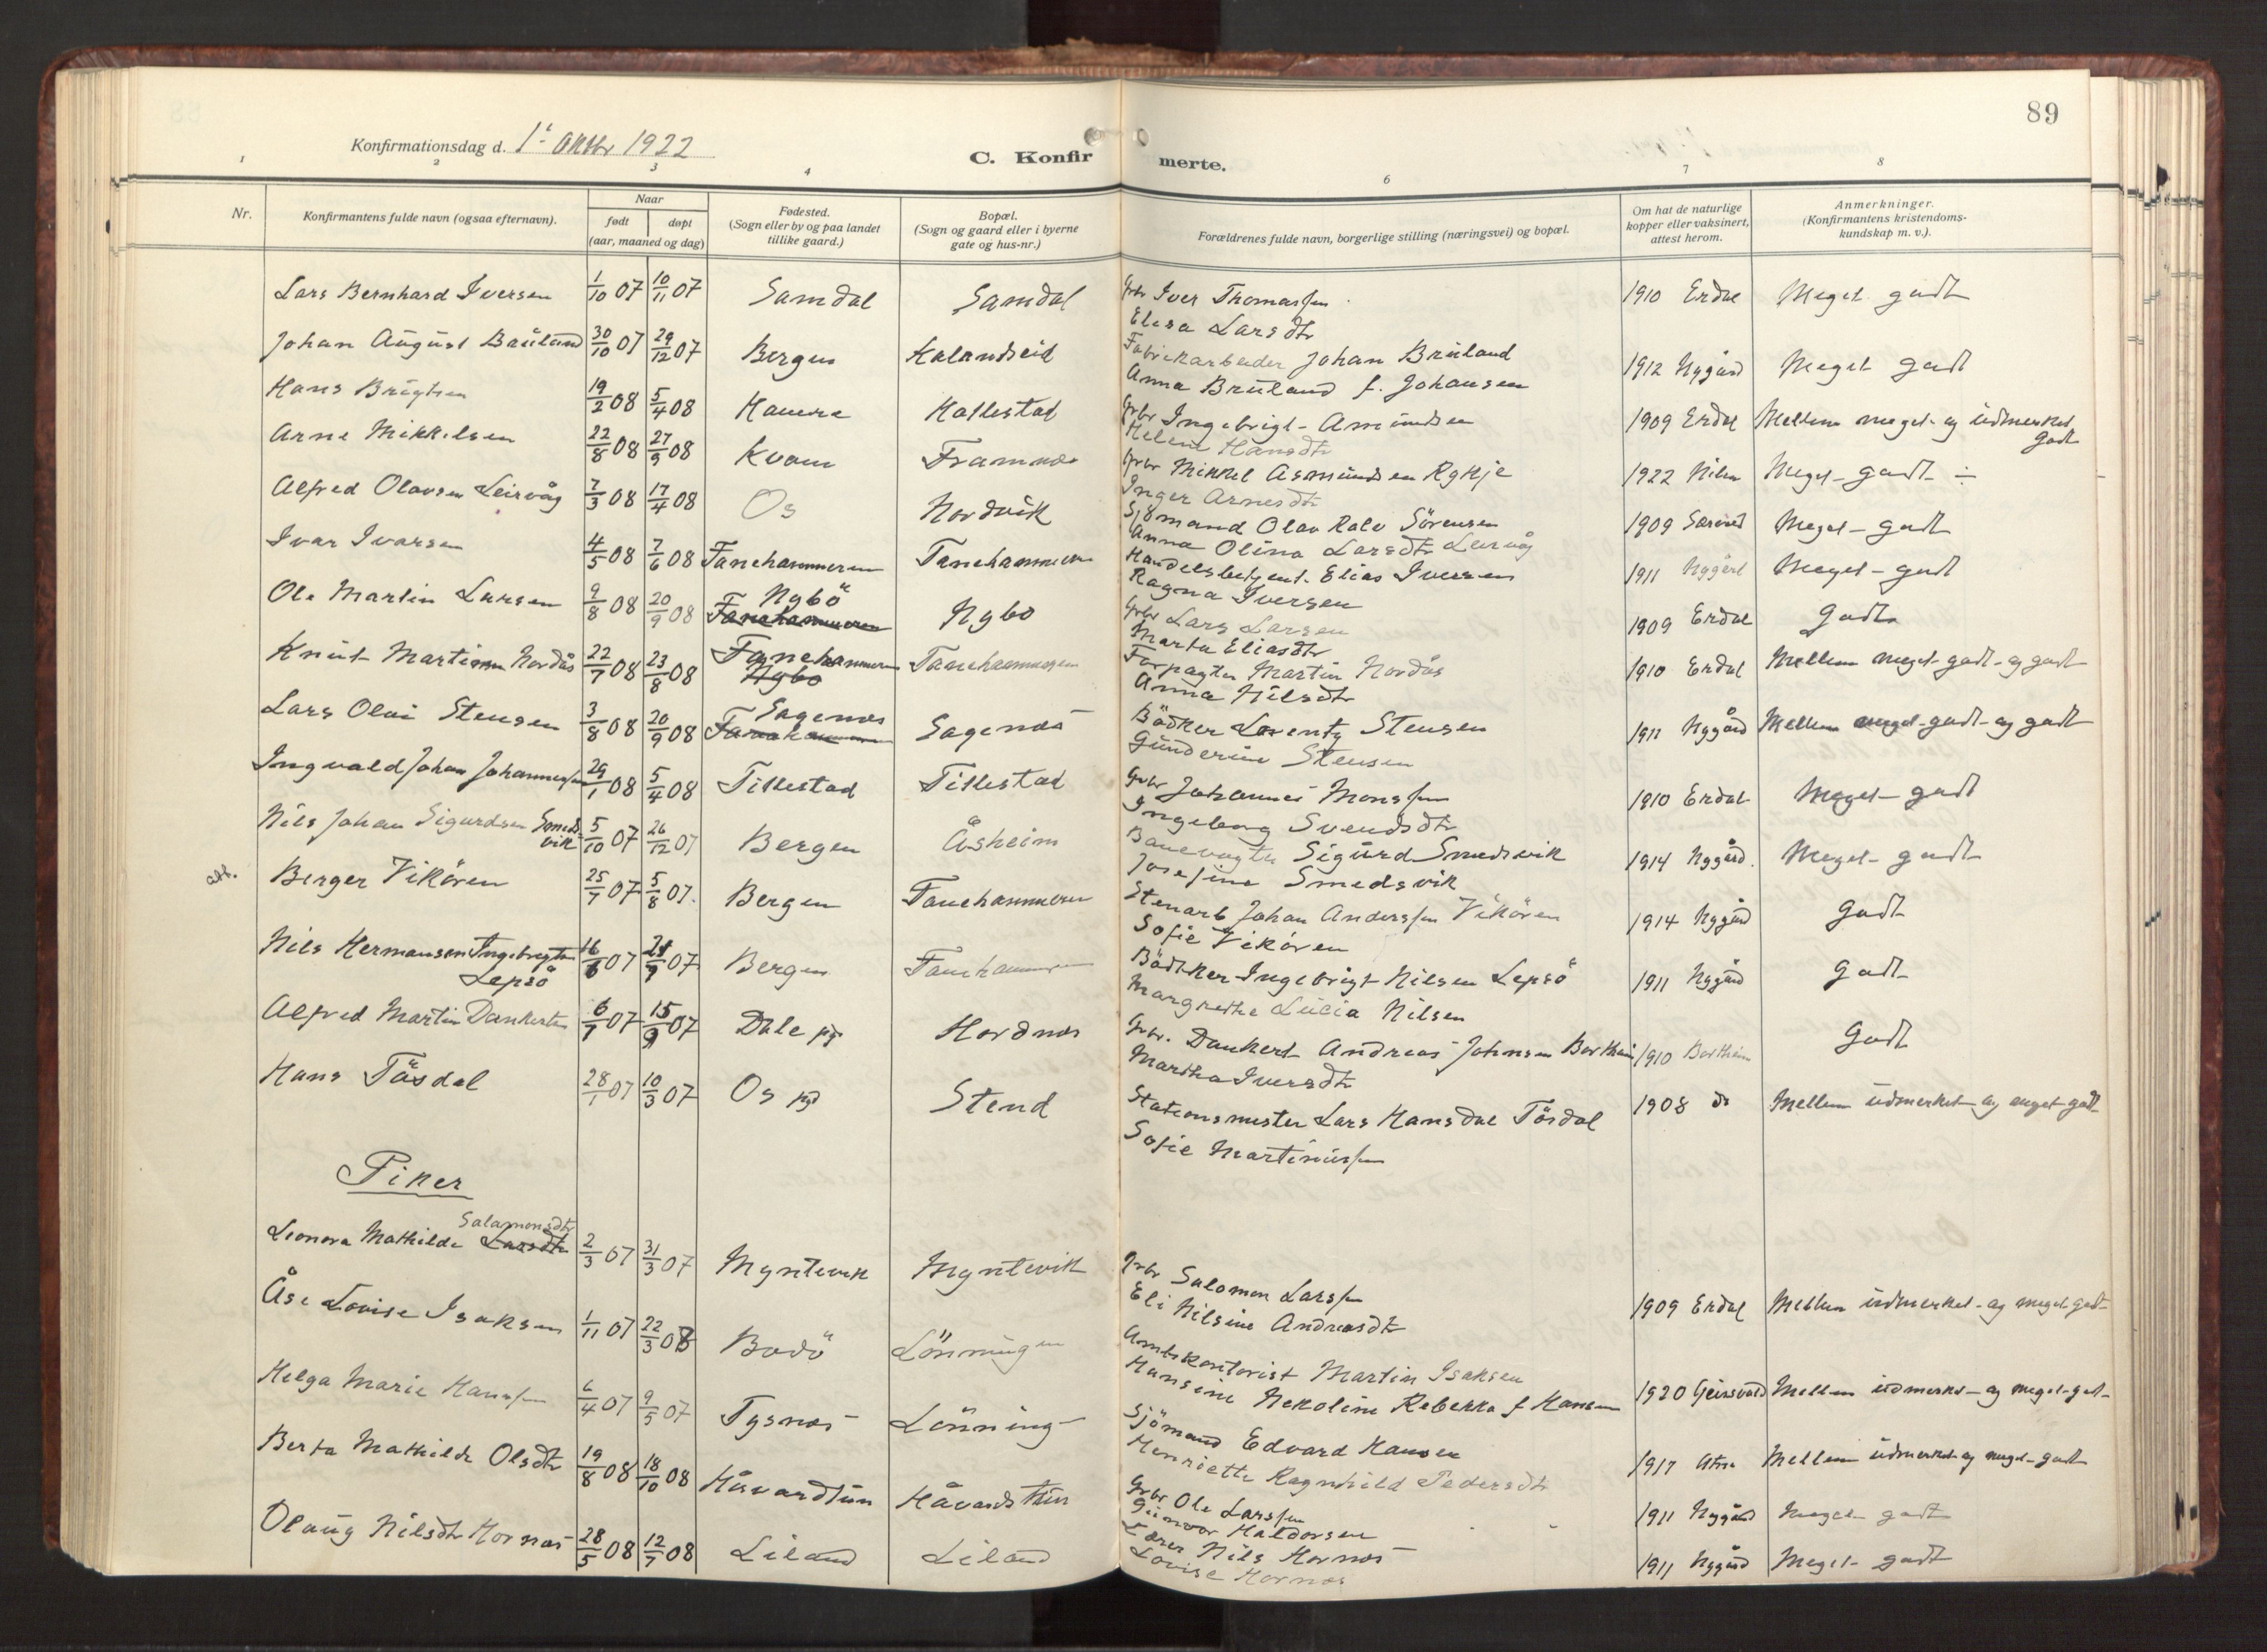 89
Konfirmationsdag d. 1' Oktbr 1922
C. Konfirmerte.
1 2 3 4 6 7 8
Nr.
Konfirmantens fulde navn (ogsaa efternavn).
Naar
født døpt
(aar, maaned og dag)
Fødested.
(Sogn eller by og paa landet
tillike gaard.)
Bopæl.
(Sogn og gaard eller i byerne
gate og hus-nr.)
Forældrenes fulde navn, borgerlige stilling (næringsvei) og bopæl.
Om hat de naturlige
kopper eller vaksinert,
attest herom.
Anmerkninger.
(Konfirmantens kristendoms-
kundskap m. v.).
Lars Bernhard Iversen 1/10 07 10/11 07 Samdal Samdal Grbr Iver Thomassen 1910 Erdal Meget godt
Elisa Larsdtr
Johan August Bruland 30/10 07 29/12 07 Bergen Kalandseid Fabrikarbeider Johan Bruland 1912 Nygård Meget godt
Anna Bruland f. Johansen
Hans Brigtsen 19/2 08 5/4 08 Hallestad Grbr Ingebrigt Amundsen 1909 Erdal Mellem meget og udmerket
godt
Helene Hansdtr
Arne Mikkelsen 22/8 08 27/9 08 Kvam Framnæs Grbr Mikkel Asmundsen Rykje 1922 Meget godt ÷
Inger Arnesdtr
Alfred Olavsen Leirvåg 7/3 08 17/4 08 Os Nordvik Sjömand Olav Rale Sörensen 1909 Meget godt
Anna Olina Larsdtr Leirvåg
Ivar Ivarsen 4/5 08 7/6 08 Fanehammeren Fanehammeren Handelsbetjent Elias Iversen 1911 Nygård Meget godt
Ragna Iversen
Ole Martin Larsen 9/8 08 20/9 08 Nybö Fanehammeren Nybo Grbr Lars Larsen 1909 Erdal Godt
Marta Eliasdtr
Knut Martin Nordås 22/7 08 23/8 08 Fanehammeren Nybo Fanehammeren Forpagter Martin Nordås 1910 Erdal Mellem meget godt og godt
Anna Nilsdtr
Lars Olai Stensen 3/8 08 20/9 08 Sagenæs Fanehammeren Sagenæs Bödker Lorentz Stensen 1911 Nygård Mellem meget godt og godt
Gunderine Stensen
Ingvald Johan Johannessen 29/1 08 5/4 08 Tillestad Tillestad Grbr Johannes Monssen 1910 Erdal Meget godt
Ingeborg Svendsdtr
Nils Johan Sigurdsen Smeds-
vik 5/10 07 26/12 07 Bergen Åsheim Banevogter Sigurd Smedsvik 1914 Nygård. Meget godt
Josefine Smedsvik
att. Berger Vikören 25/7 07 5/8 07. Bergen Fanehammeren Stenarb Johan Anderssen Vikören 1914 Nygård Godt
Sofie Vikören
Nils Hermansen Ingebrigtsen
Lepsö 16/6 07 21/7 07 Bergen Fanehammeren Bödker Ingebrigt Nilsen Lepsö 1911 Nygård Godt
Margrethe Lucia Nilsen
Alfred Martin Dankertsen 6/7 07 15/9 07 Dale pgj Hordnæs Grbr. Dankert Andreas Johnsen Bortheim 1910 Bortheim Godt
Martha Iversdtr
Hans Tösdal 28/1 07 10/3 07 Os pgj Stend Stationsmester Lars Hansdal Tösdal 1908 do Mellem udmerket og meget godt
Sofie Martinussen
Piker
Salamonsdtr
Leonora Mathilde Larsdtr 2/3 07 31/3 07 Myntevik Myntevik Grbr Salomon Larssen 1909 Erdal Mellem udmerket og meget godt
Eli Nilsine Andreasdtr
Åse Lovise Isaksen 1/11 07 22/3 08 Bodö Lönningen Amtskontorist Martin Isaksen 1920 Mellem udmerket og meget godt
Hansine Nekoline Rebekka f Hansen
Helga Marie Hanssen 6/4 07 9/5 07 Tysnæs Lönning Sjömand Edvard Hansen 1917 Mellem udmerket og meget godt
Henriette Ragnhild Pedersdtr
Berta Mathilde Olsdtr 19/8 08 18/10 08 Håvardtun Håvardstun Grbr Ole Larssen 1911 Nygård Meget godt
Gunvor Haldorsen
Olaug Nilsdtr Hornæs 28/5 08 12/7 08 Liland Liland Lærer Nils Hornæs 1911 Nygård Meget godt
Lovise Hornæs